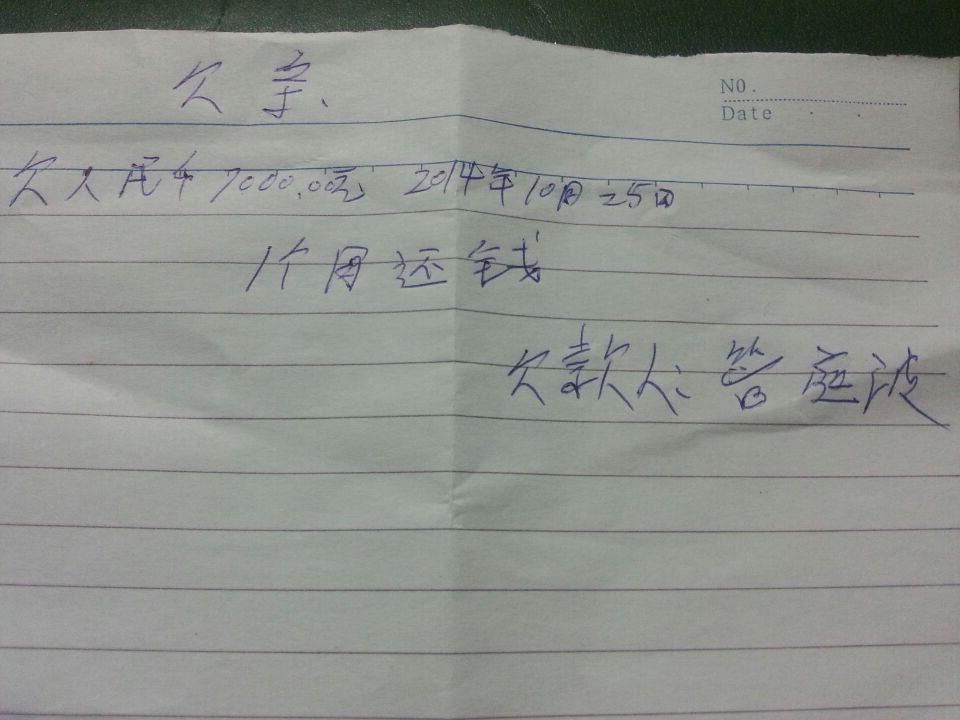 NO.
Date
欠字、
欠人民币7000.00元 2014年10月25日
1个月还钱
欠款人: 管庭波